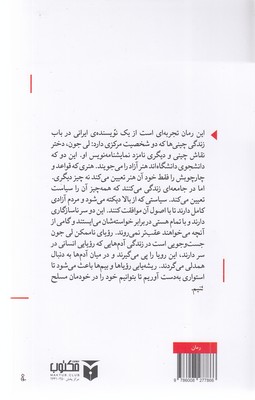 این رمان تجربه‌ای است از یک نویسنده‌ی ایرانی در باب
زندگی چینی‌ها که دو شخصیت مرکزی دارد: لی جون، دختر
نقاش چینی و دیگری نامزد نمایشنامه‌نویس او. این دو که
دانشجوی دانشگاه‌اند هنر آزاد را می‌جویند. هنری که قواعد و
چارچوبش را فقط خود آن هنر تعیین می‌کند نه چیز دیگری.
اما در جامعه‌ای زندگی می‌کنند که همه‌چیز آن را سیاست
تعیین می‌کند. سیاستی که از بالا دیکته می‌شود و مردم آزادی
کامل دارند تا با اصول آن موافقت کنند. این دو سر ناسازگاری
دارند و تا مرز هستی در برابر خواسته‌شان می‌ایستند و گامی از
آنچه می‌خواهند عقب‌تر نمی‌روند. رؤیای ناممکن لی جون
جست‌وجویی است در زندگی آدم‌هایی که رؤیایی انسانی در
سر دارند، این رویا را پی می‌گیرند و در میان آدم‌ها به دنبال
همدلی می‌گردند. ریشه‌یابی رؤیاها و بیم‌ها باعث می‌شود تا
استواری به‌دست آوریم تا بتوانیم خود را در خودمان مسلح
کنیم.
رمان
مکتوب
MAKTUB CLUB